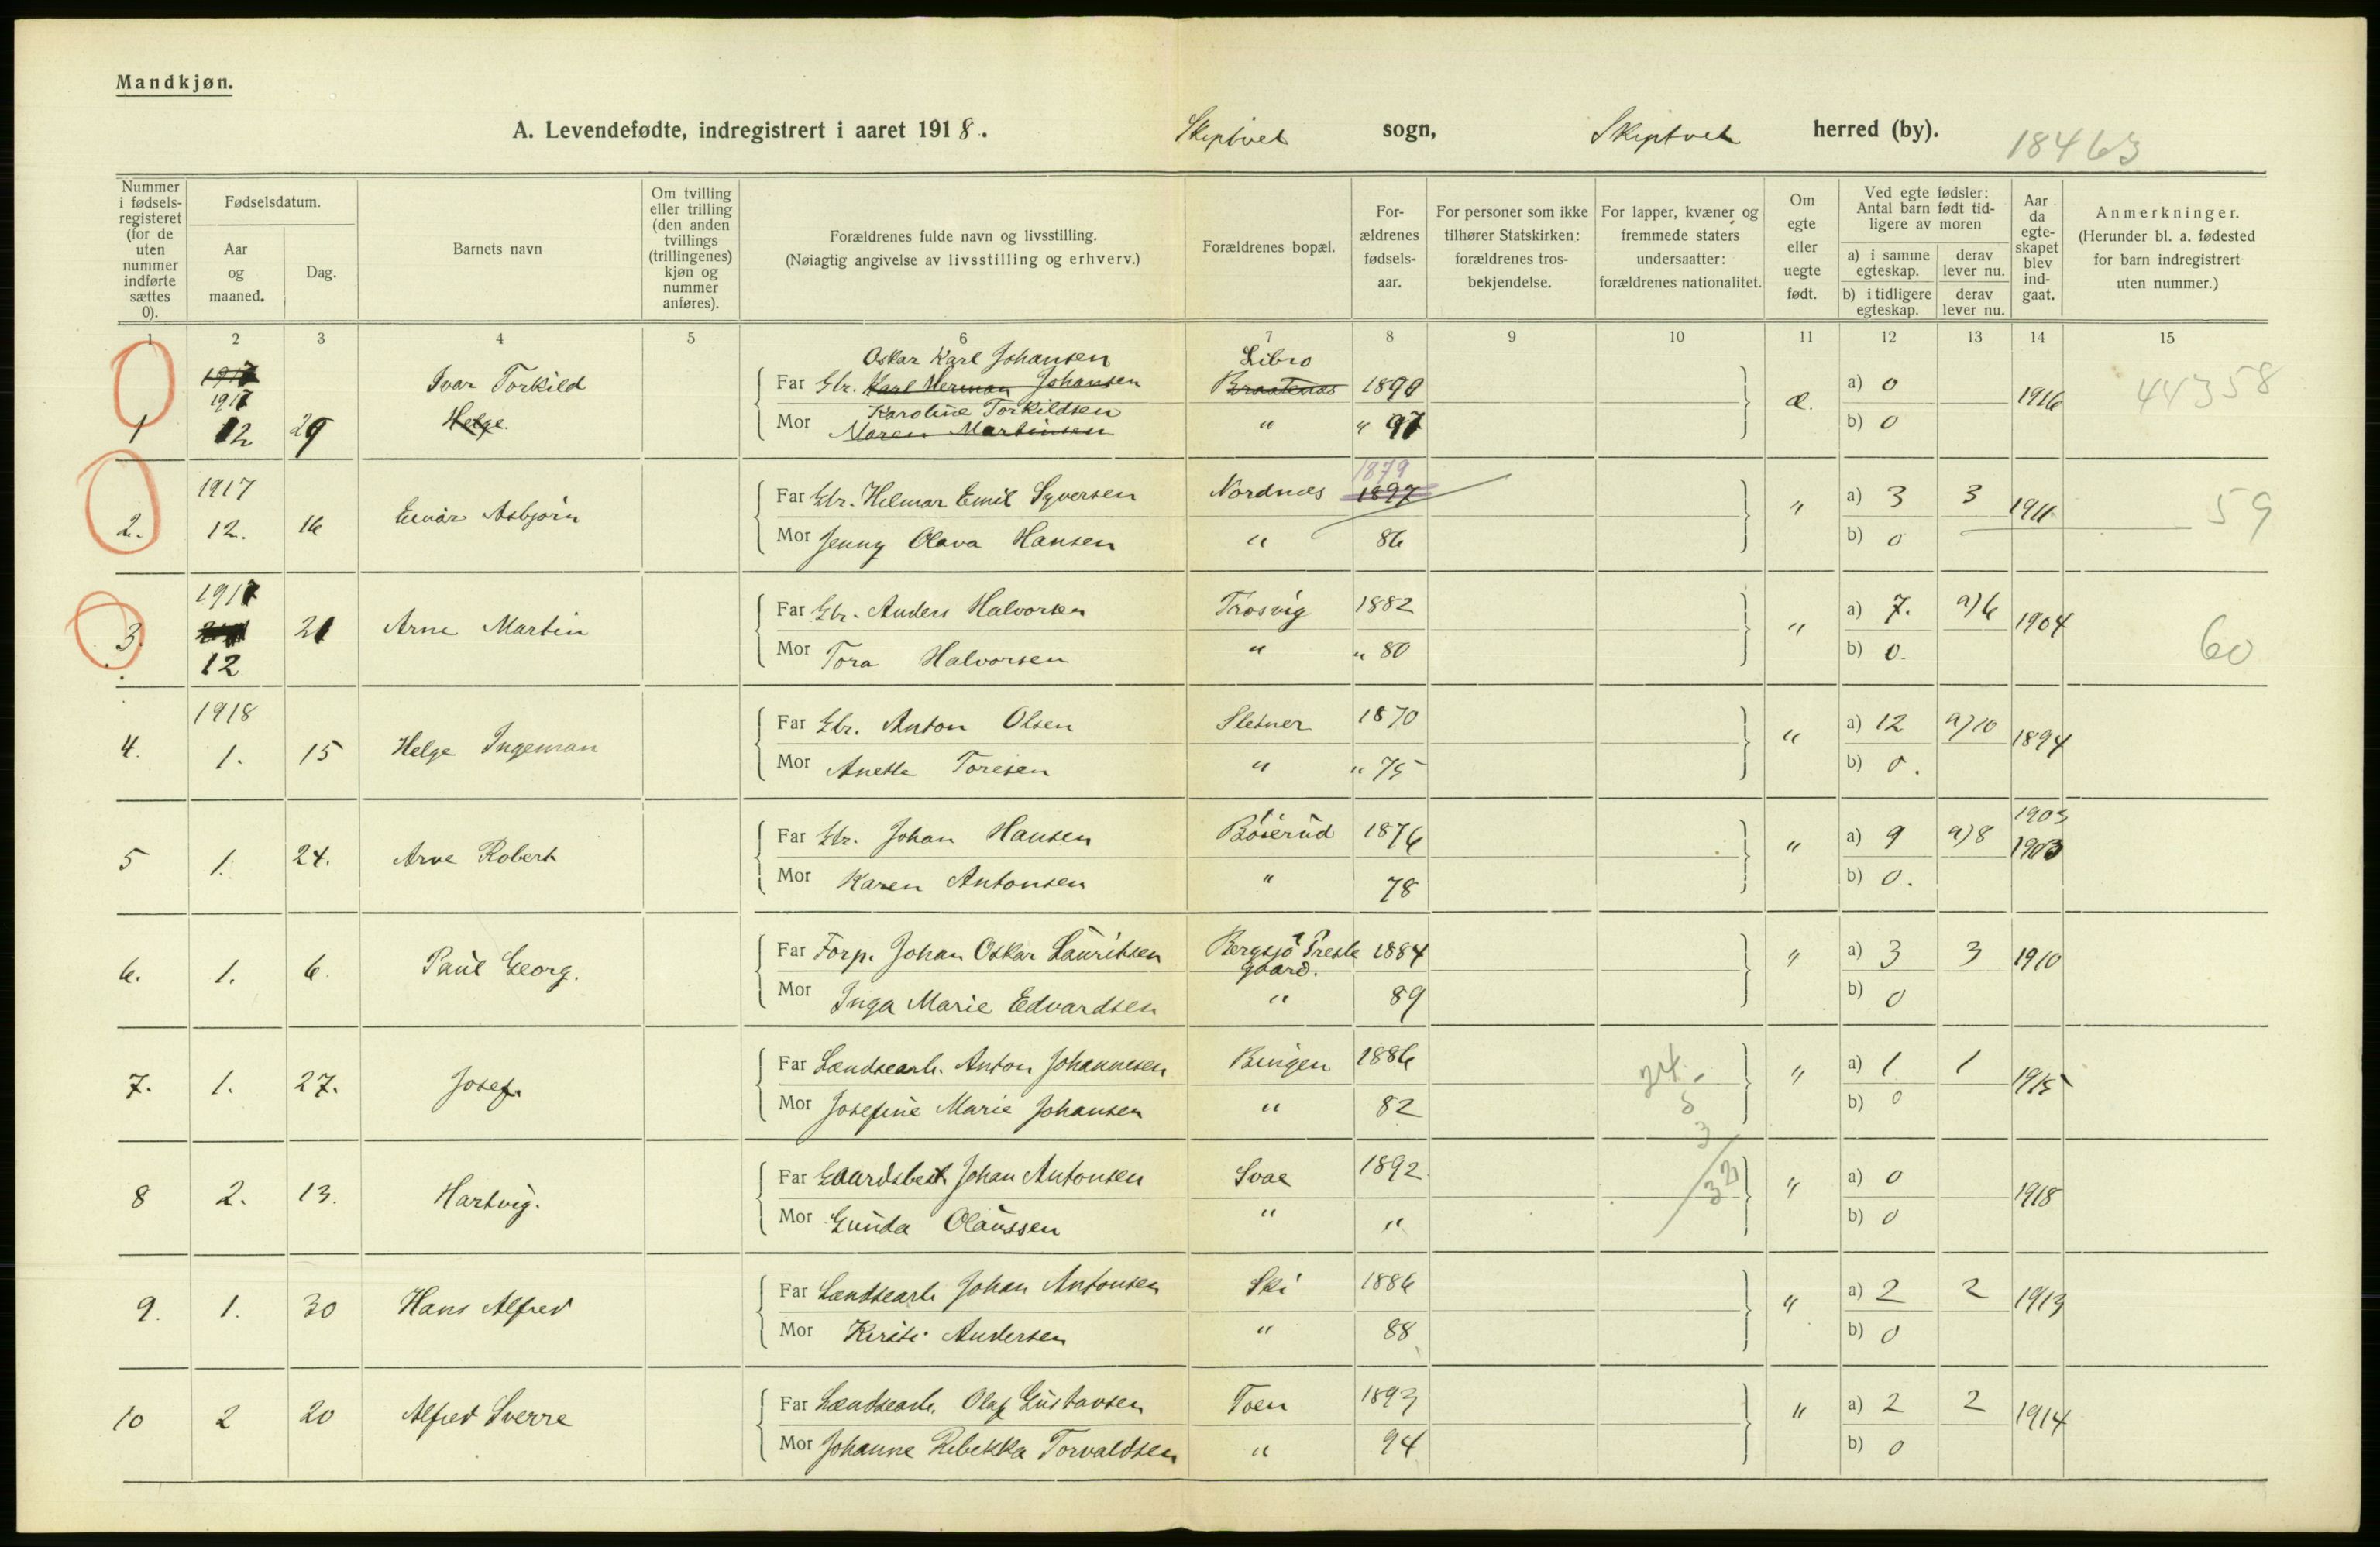 Mandkjøn.
A. Levendefødte, indregistrert i aaret 1918. Skiptvet sogn, Skiptvet herred (by). 18463
Nummer i fødsels-registeret (for de uten nummer indførte sættes 0).
Fødselsdatum.
Aar og maaned.
Dag.
Barnets navn
Om tvilling eller trilling (den anden tvillings (trillingenes) kjøn og nummer anføres).
Forældrenes fulde navn og livsstilling.
(Nøiagtig angivelse av livsstilling og erhverv.)
Forældrenes bopæl.
For-ældrenes fødsels-aar.
For personer som ikke tilhører Statskirken: forældrenes tros-bekjendelse.
For lapper, kvæner og fremmede staters undersaatter: forældrenes nationalitet.
Om egte eller uegte født.
Ved egte fødsler: Antal barn født tid-ligere av moren
a) i samme egteskap. derav lever nu.
b) i tidligere egteskap. derav lever nu.
Aar da egte-skapet blev ind-gaat.
Anmerkninger.
(Herunder bl. a. fødested for barn indregistrert uten nummer.)
1 2 3 4 5 6 7 8 9 10 11 12 13 14 15
Oskar Karl Johansen Libro
1917 Ivar Torkild Far Gbr. Karl Herman Johansen Braatenas 1890 a) 0 44358
1917 Karoline Torkildsen æ. 1916
1 12 29 Helge. Mor Maren Martinsen " " 97 b) 0
1879
1917 Far Gbr. Helmar Emil Syversen Nordnæs 1897 a) 3 3
2. 12. 16 Einar Asbjørn " 1911 59
Mor Jenny Olava Hansen " 86 b) 0
1917 Far Gbr. Anders Halvorsen Trosvig 1882 a) 7. a)6
3. 21 Arne Martin " 1904
12 Mor Tora Halvorsen " " 80 b) 0. 60
1918 Far Gbr. Anton Olsen Sletner 1870 a) 12 a)10
4. 1. 15 Helge Ingeman " 1894
Mor Anette Toresen " " 75 b) 0.
1903
Far Gbr. Johan Hansen Bøierud 1876 a) 9 a)8
5 1. 24. Arve Robert " 1903
Mor Karen Antonsen " 78 b) 0.
Far Forp. Johan Oskar Lauritsen Bergsjø Preste 1884 a) 3 3
6. 1. 6. Paul Georg. gaard. " 1910
Mor Inga Marie Edvardsen " 89 b) 0
Far Landsearb. Anton Johannesen Bingen 1886 24. a) 1 1
7. 1. 27. Josef. " 1915
Mor Josefine Marie Johansen " 82 5 b) 0
3
Far Gaardsbest Johan Antonsen Svae 1892 a) 0
8 2. 13. Hartvig. 32 " 1918
Mor Gunda Olaussen " " b) 0
Far Landsearb. Johan Antonsen Ski 1886 a) 2 2
9. 1. 30 Hans Alfred " 1913
Mor Kirsti Andersen " 88 b) 0
Far Landsearb. Olaf Gustavsen Toen 1893 a) 2 2
10 2 20 Alfred Sverre " 1914
Mor Johanne Rebekka Torvaldsen " 94 b) 0